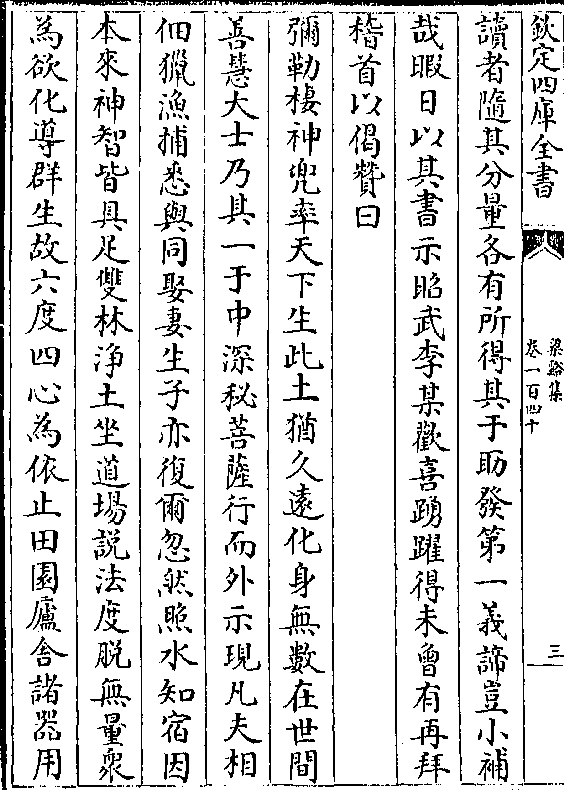 欽定四庫全書
梁谿集
卷一百四十
三
讀者隨其分量各有所得其于助發第一義諦豈小補
哉暇日以其書示昭武李某歡喜踴躍得未曾有再拜
稽首以偈贊曰
彌勒棲神兜率天下生此土猶久遠化身無數在世間
善慧大士乃其一于中深秘菩薩行而外示現凡夫相
佃獵漁捕悉與同娶妻生子亦復爾忽然照水知宿因
本來神智皆具足雙林淨土坐道場説法度脱無量衆
為欲化導群生故六度四心為依止田園廬舍諸器用